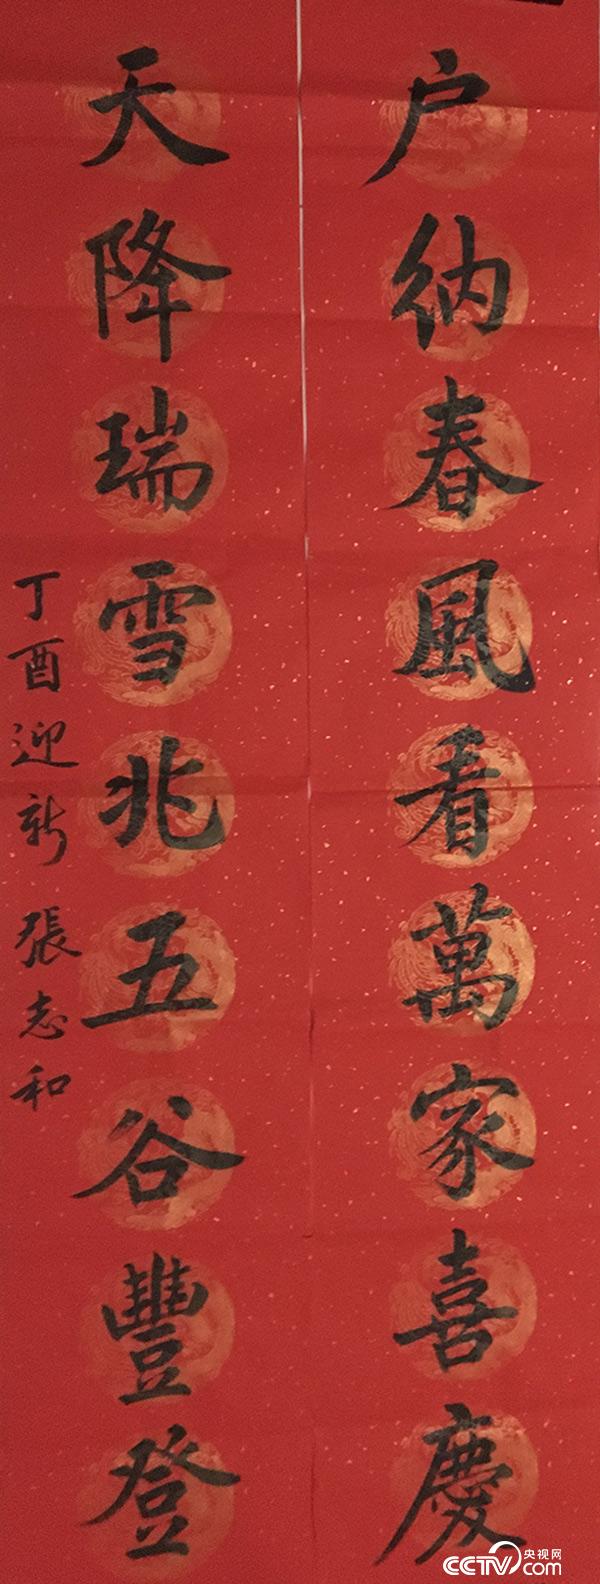 户纳春風看萬家喜慶
天降瑞雪兆五谷豐登
丁酉迎新 張志和
央视网
CCTV.com